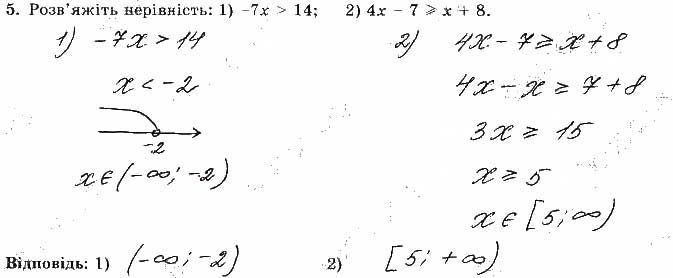 5. Розв'яжіть нерівність: 1) -7x > 14; 2) 4x - 7 ⩾ x + 8.
1) -7x > 14
x < -2
-2
x ∈ (-∞; -2)
2) 4x - 7 ≥ x + 8
4x - x ≥ 7 + 8
3x ≥ 15
x ≥ 5
x ∈ [5; ∞)
Відповідь: 1) (-∞; -2) 2) [5; +∞)